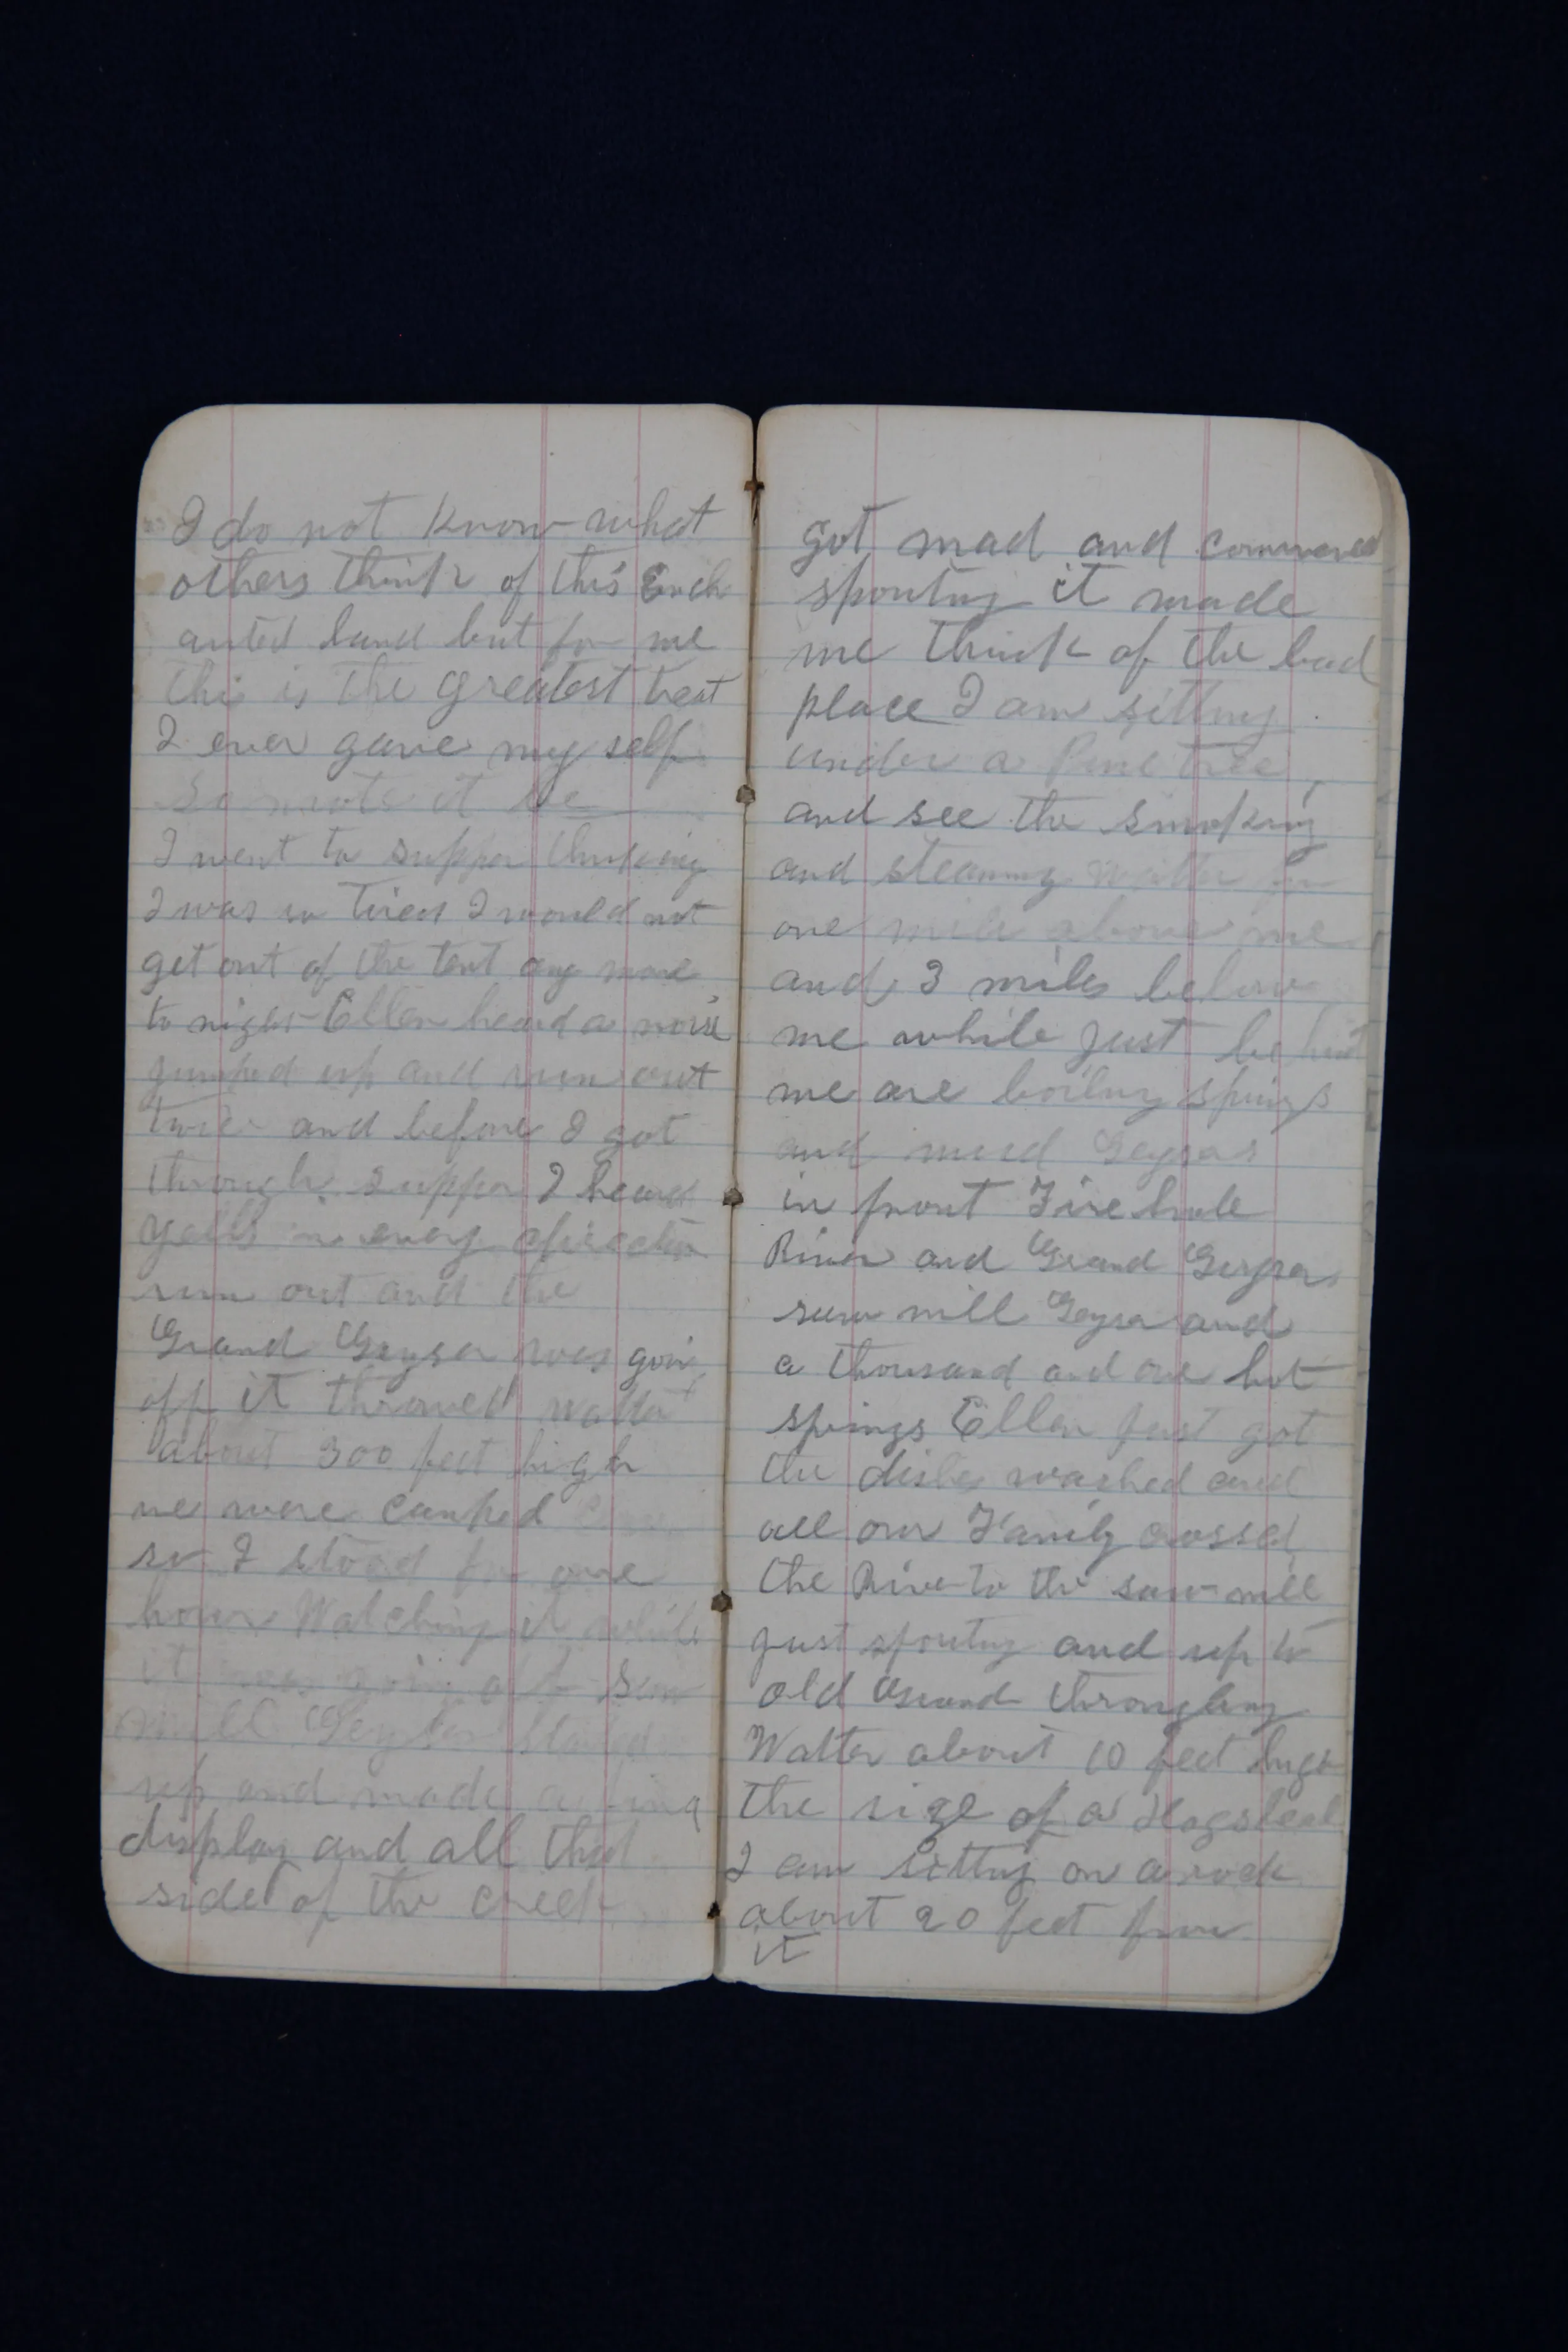 I do not know what
others think of this Ench
anted land but for me
this is the greatest treat
I ever gave my self
So mote it be
I went to supper thinking
I was so tired I would not
get out of the tent any more
to night Ellen heard a noise
jumped up and run out
twice and before I got
through supper I heard
yells in every direction
run out and the
Grand Geyser was goin
off it throwed watter
about 300 feet high
we were camped
so I stood for one
hour Watching it while
it was going off Saw
mill Geyser started
up and made a fine
display and all that
side of the creek
got mad and commenced
spouting it made
me think of the bad
place I am sitting
under a Pine tree
and see the smoking
and steaming watter for
one mile above me
and 3 miles below
me while just behind
me are boiling springs
and mud Geysers
in front Fire hole
River and Grand Geyser
saw mill Geyser and
a thousand and one hot
springs Ellen just got
the dishes washed and
all our Family crossed
the River to the saw mill
just spouting and up to
old Grand throughing
Watter about 10 feet high
the size of a Hogshead
I am sitting on a rock
about 20 feet from
it